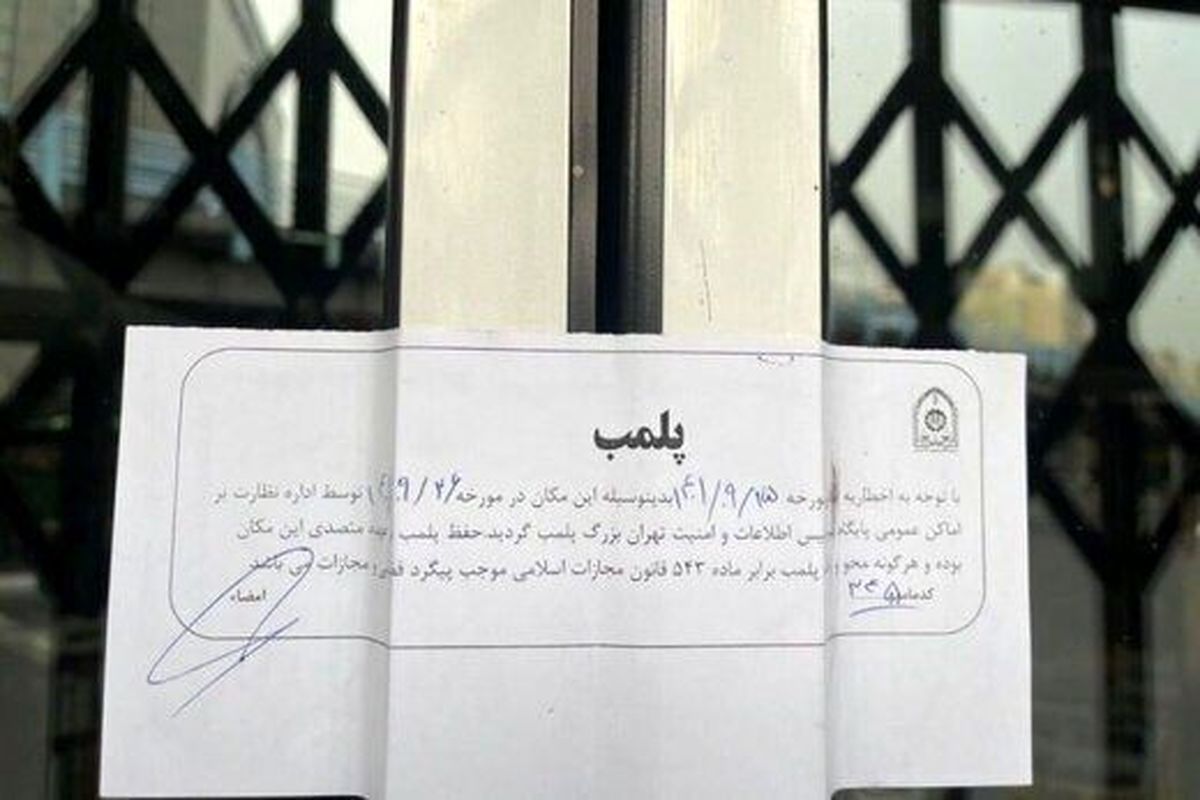 پلمب
با توجه به اخطاریه مورخه ۱۴۰۱/۹/۱۵ بدینوسیله این مکان در مورخه ۹/۲۶ توسط اداره نظارت بر
اماکن عمومی پایگاه اطلاعات و امنیت تهران بزرگ پلمب گردید حفظ پلمب متصدی این مکان
بوده و هرگونه محو پلمب برابر ماده ۵۴۳ قانون مجازات اسلامی موجب پیگرد و مجازات می باشد
امضاء